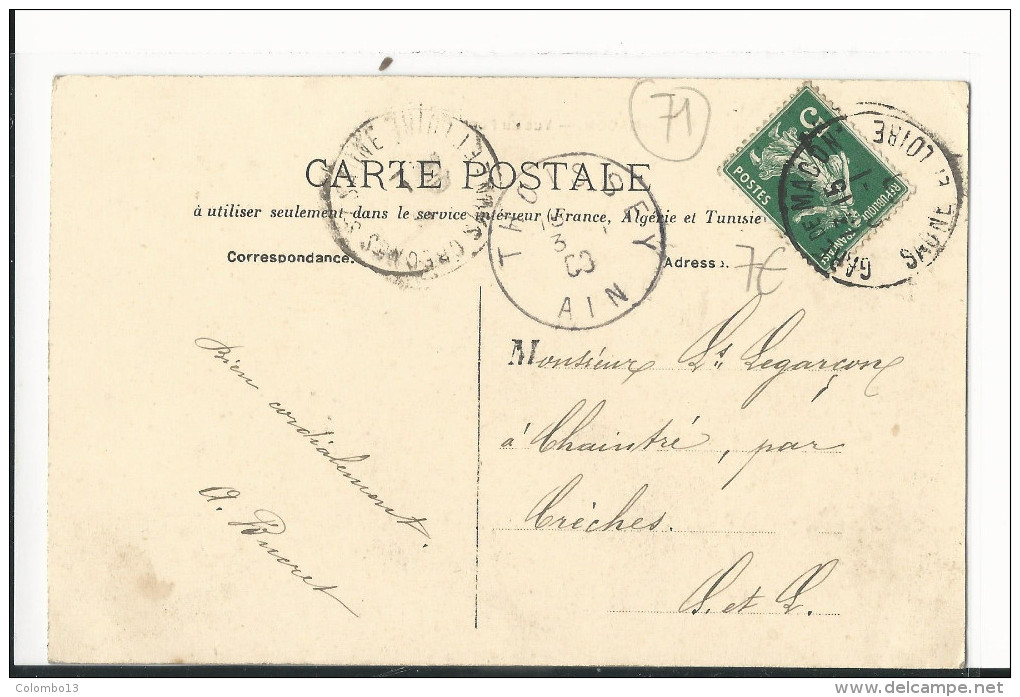 71
CARTE POSTALE
à utiliser seulement dans le service intérieur (France, Algérie et Tunisie
Correspondance.
Adresse.
7€
THOISSEY
AIN
GARE DE MACON
SAONE ET LOIRE
POSTES
5
Bien cordialement.
Monsieur Ls Legarçon
à Chaintré, par
Crèches.
S. et L.
Colombo13
www.delcampe.net